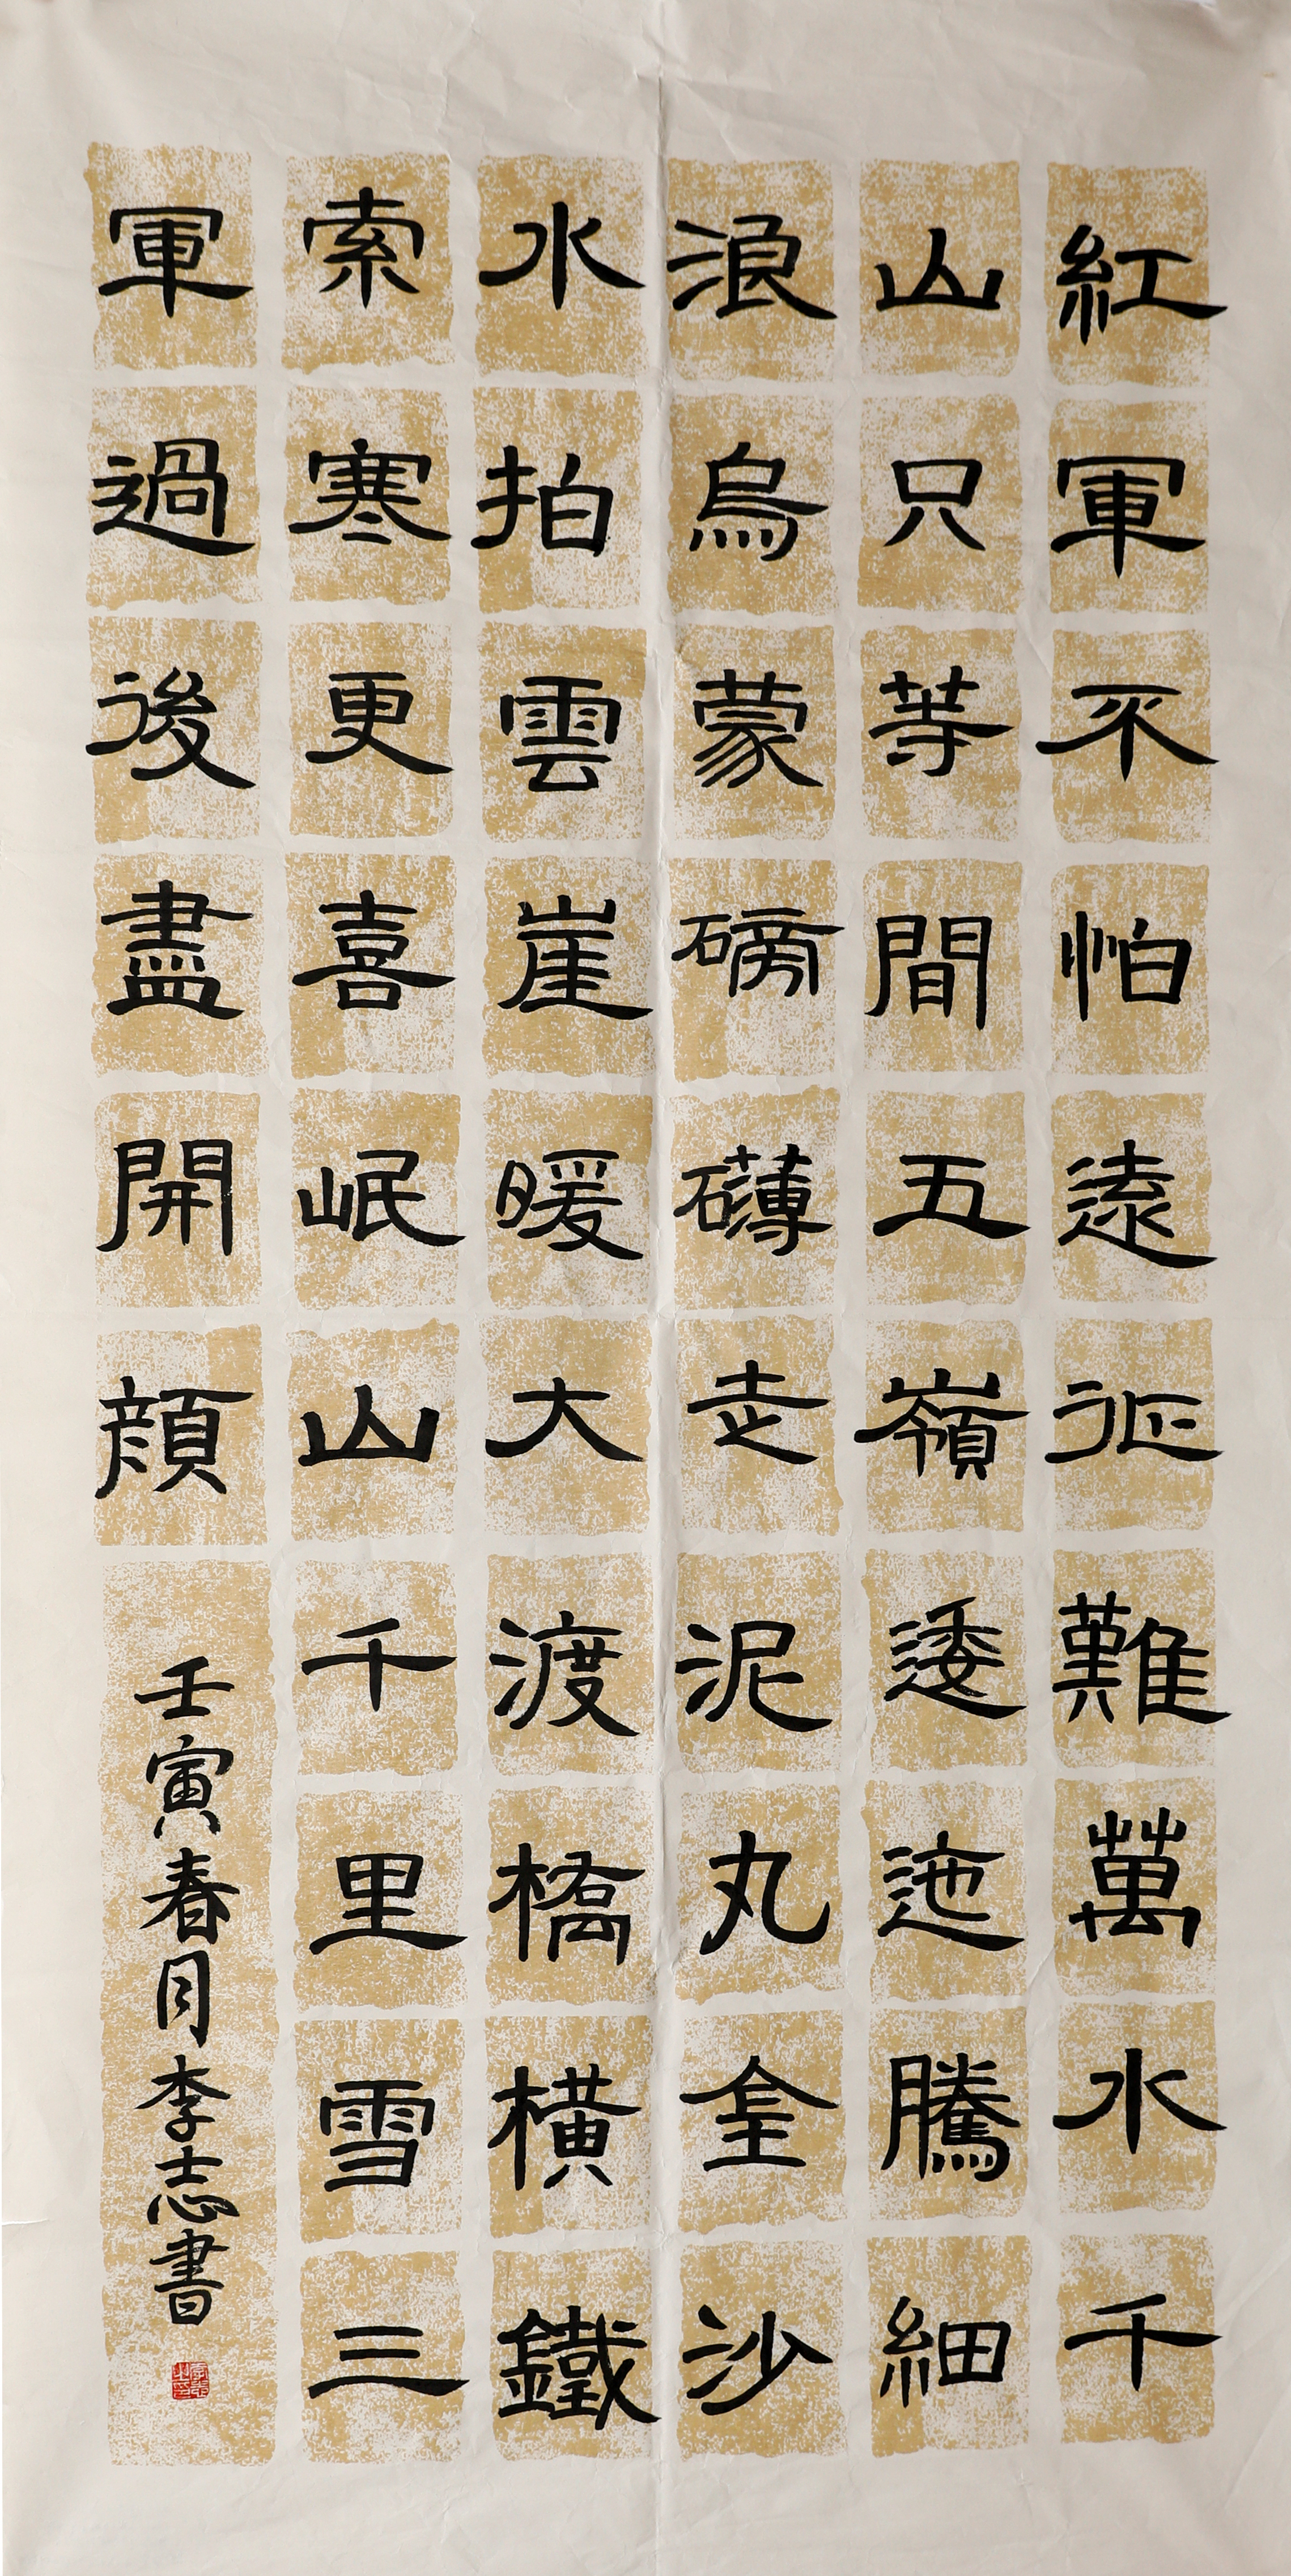 紅軍不怕遠征難萬水千
山只等間五嶺逶迤騰細
浪烏蒙磅礴走泥丸金沙
水拍雲崖暖大渡橋橫鐵
索寒更喜岷山千里雪三
軍過後盡開顔
壬寅春月李志書